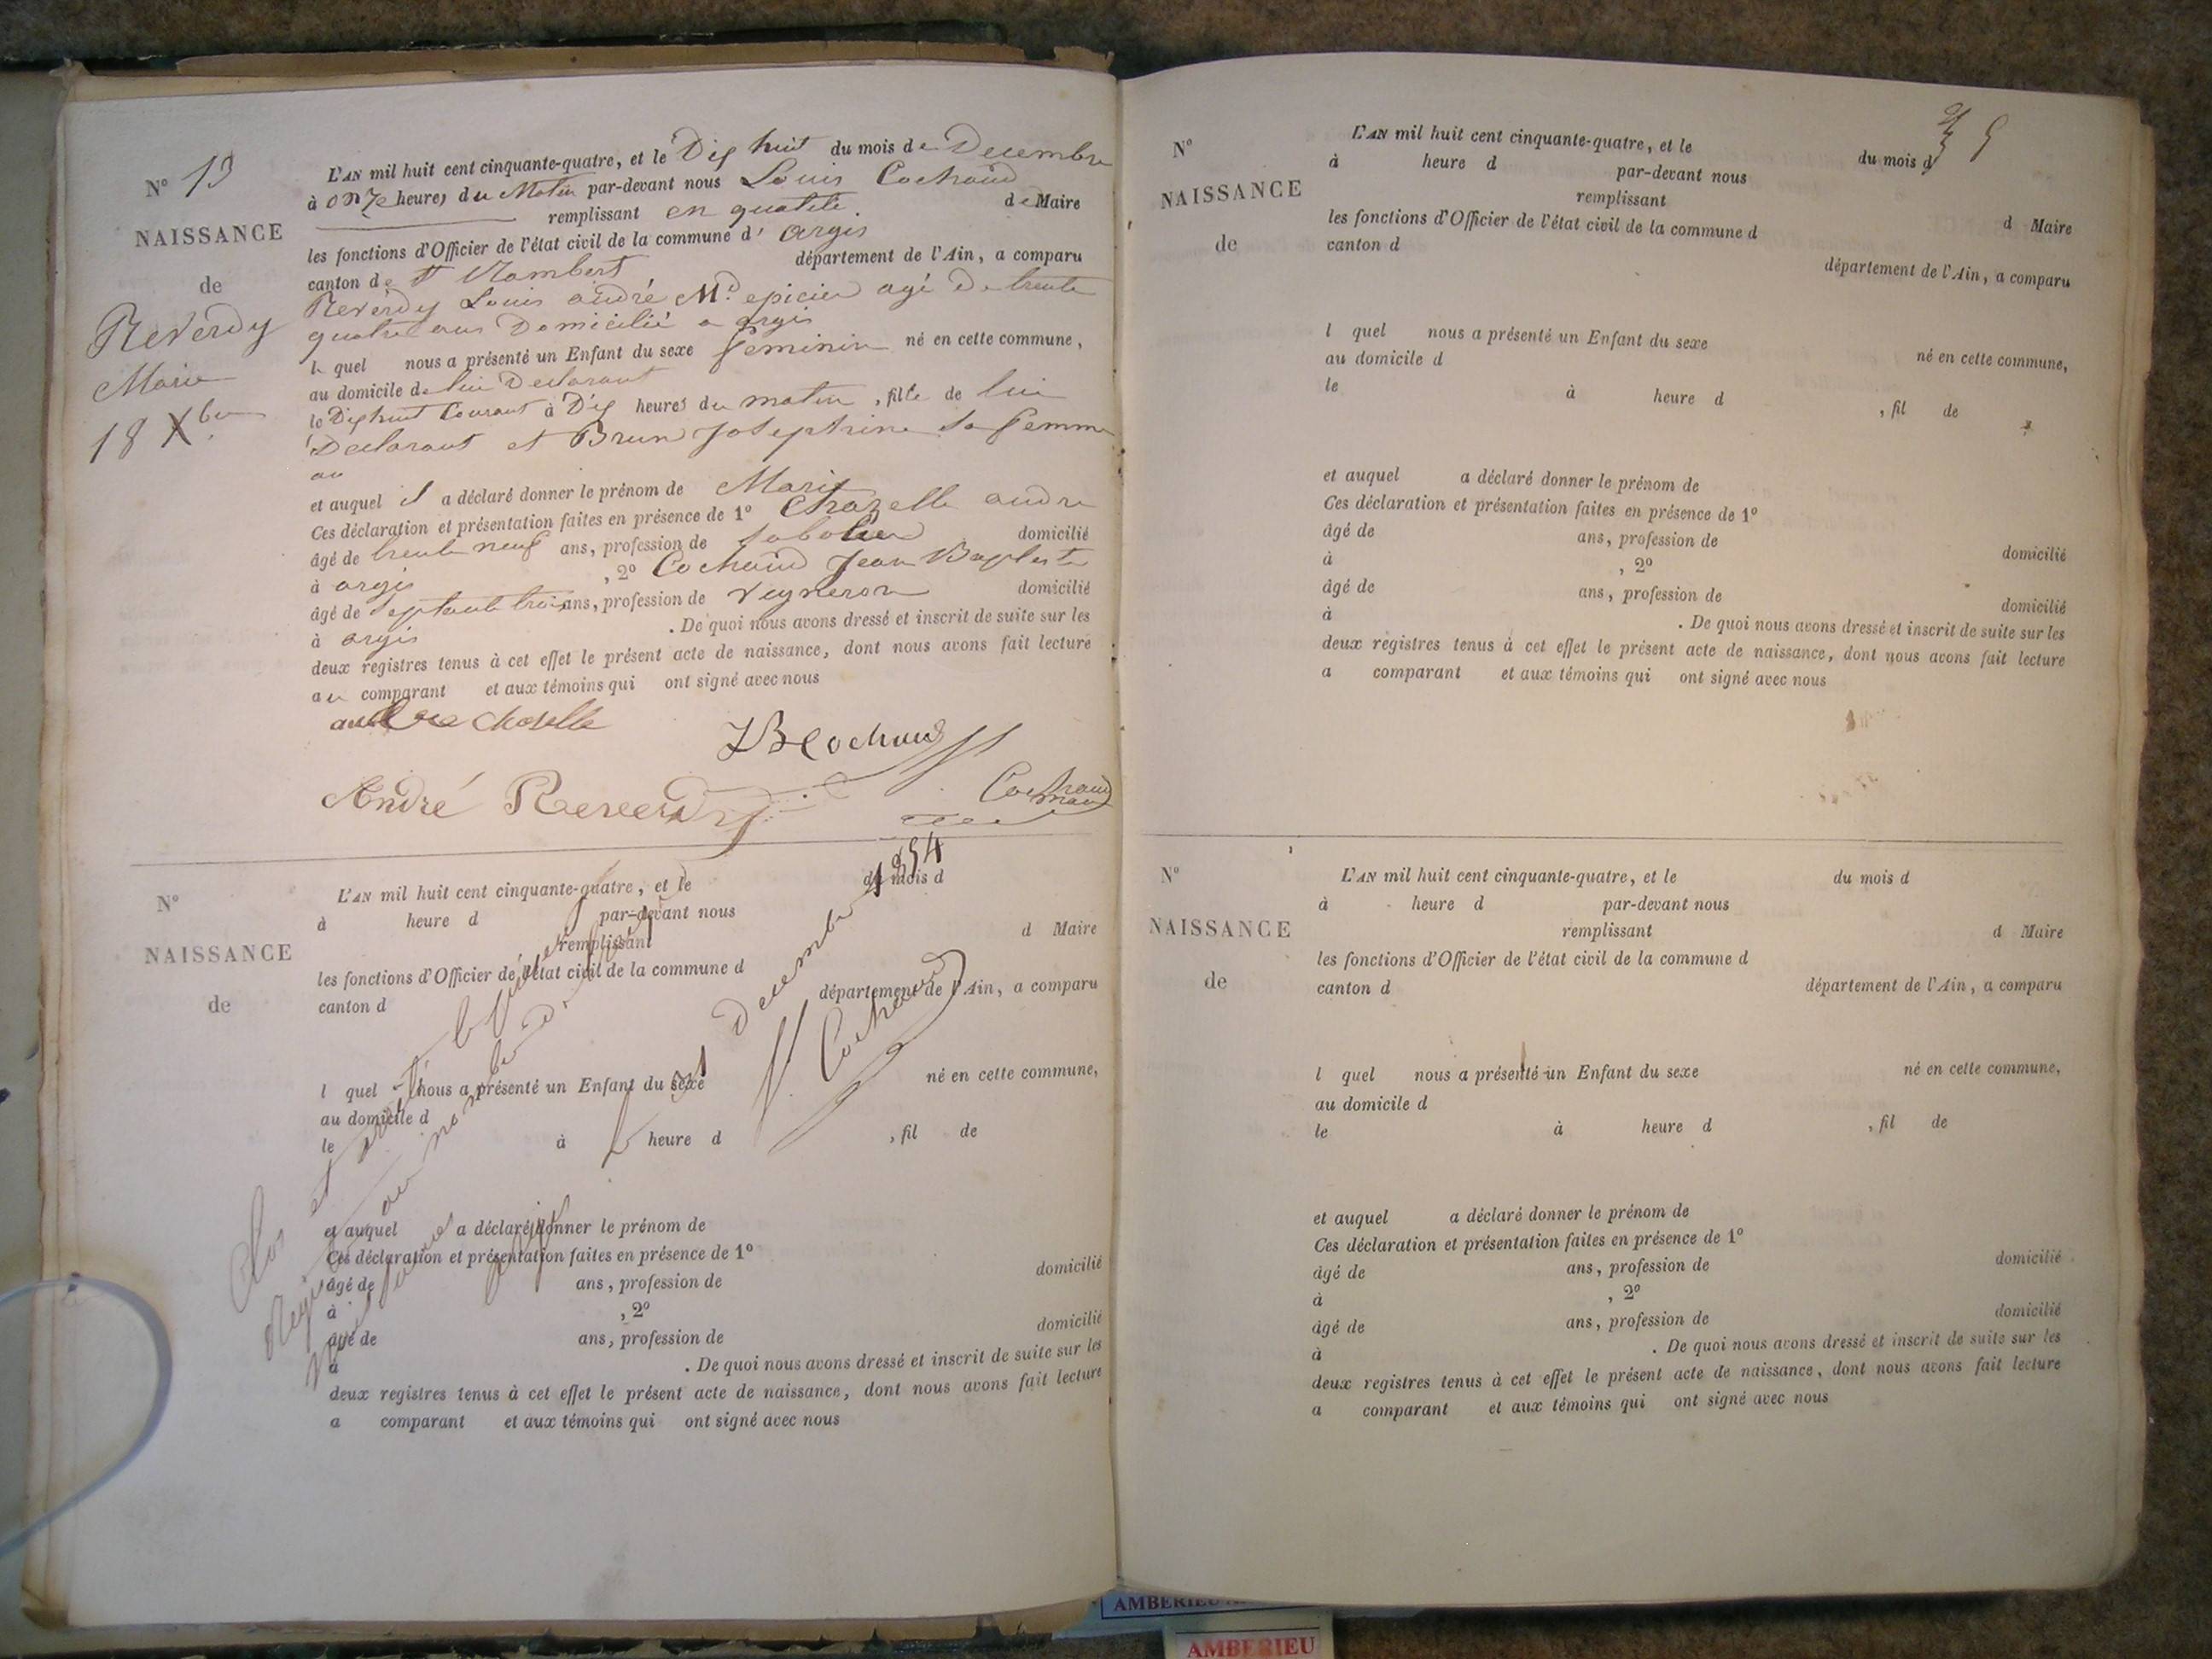 N° 13
NAISSANCE
de
Reverdy
Marie
18 Xbre
L'AN mil huit cent cinquante-quatre, et le Dix huit du mois de Decembre
à onze heures du Matin par-devant nous Louis Cochaud
de Maire
remplissant en qualité
les fonctions d'Officier de l'état civil de la commune d' argis
canton de St Rambert département de l'Ain, a comparu
Reverdy Louis andré Md epicier agé de trente
quatre ans Domicilié a argis
le quel nous a présenté un Enfant du sexe feminin né en cette commune,
au domicile de lui Declarant
le Dix huit Courant à Dix heures du matin , fille de lui
Declarant et Brun Josephine sa femme
au
et auquel il a déclaré donner le prénom de Marie
Ces déclaration et présentation faites en présence de 1° Chazelle andre
âgé de trente neuf ans, profession de domicilié
à argis , 2° Cochaud Jean Baptiste
âgé de septante trois ans, profession de vigneron domicilié
à argis . De quoi nous avons dressé et inscrit de suite sur les
deux registres tenus à cet effet le présent acte de naissance, dont nous avons fait lecture
au comparant et aux témoins qui ont signé avec nous
JB Cochaud
André Reverdy
Cochaud
N°
NAISSANCE
de
L'AN mil huit cent cinquante-quatre, et le du mois d
à heure d par-devant nous
remplissant d Maire
les fonctions d'Officier de l'état civil de la commune d
canton d département de l'Ain, a comparu
l quel nous a présenté un Enfant du sexe né en cette commune,
au domicile d
le à heure d , fil de
et auquel a déclaré donner le prénom de
Ces déclaration et présentation faites en présence de 1°
âgé de ans, profession de domicilié
à , 2°
âgé de ans, profession de domicilié
à . De quoi nous avons dressé et inscrit de suite sur les
deux registres tenus à cet effet le présent acte de naissance, dont nous avons fait lecture
a comparant et aux témoins qui ont signé avec nous
Clos et
au nombre de
31 Decembre 1854
Cochaud
N°
NAISSANCE
de
L'AN mil huit cent cinquante-quatre, et le du mois d
à heure d par-devant nous
remplissant d Maire
les fonctions d'Officier de l'état civil de la commune d
canton d département de l'Ain, a comparu
l quel nous a présenté un Enfant du sexe né en cette commune,
au domicile d
le à heure d , fil de
et auquel a déclaré donner le prénom de
Ces déclaration et présentation faites en présence de 1°
âgé de ans, profession de domicilié
à , 2°
âgé de ans, profession de domicilié
à . De quoi nous avons dressé et inscrit de suite sur les
deux registres tenus à cet effet le présent acte de naissance, dont nous avons fait lecture
a comparant et aux témoins qui ont signé avec nous
N°
NAISSANCE
de
L'AN mil huit cent cinquante-quatre, et le du mois d
à heure d par-devant nous
remplissant d Maire
les fonctions d'Officier de l'état civil de la commune d
canton d département de l'Ain, a comparu
l quel nous a présenté un Enfant du sexe né en cette commune,
au domicile d
le à heure d , fil de
et auquel a déclaré donner le prénom de
Ces déclaration et présentation faites en présence de 1°
âgé de ans, profession de domicilié
à , 2°
âgé de ans, profession de domicilié
à . De quoi nous avons dressé et inscrit de suite sur les
deux registres tenus à cet effet le présent acte de naissance, dont nous avons fait lecture
a comparant et aux témoins qui ont signé avec nous
AMBERIEU
AMBERIEU